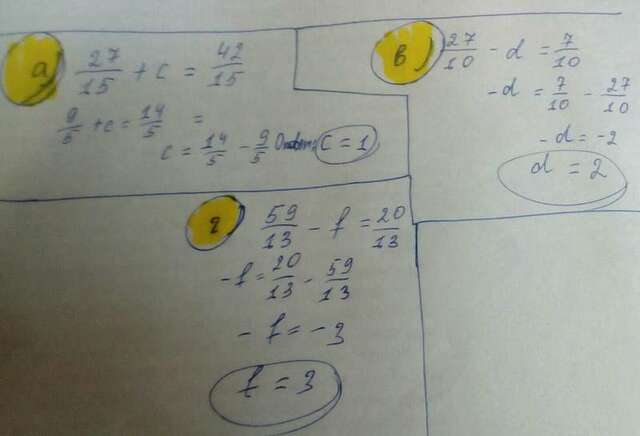 а) 27/15 + c = 42/15
9/5 + c = 14/5 =
c = 14/5 - 9/5 Ответ: c = 1
в) 27/10 - d = 7/10
-d = 7/10 - 27/10
-d = -2
d = 2
г 59/13 - f = 20/13
-f = 20/13 - 59/13
-f = -3
f = 3